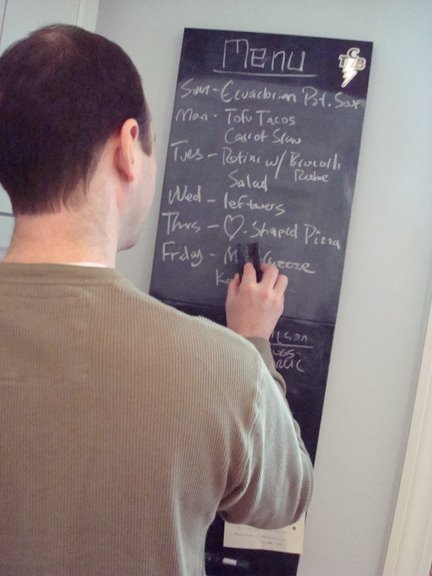 Menu
TCB
Sun - Ecuadorian Pot. Soup
Mon - Tofu Tacos
Carrot Slaw
Tues - Rotini w/ Broccoli
Rabe
Salad
Wed - leftovers
Thurs - ♡-Shaped Pizza
Friday - M